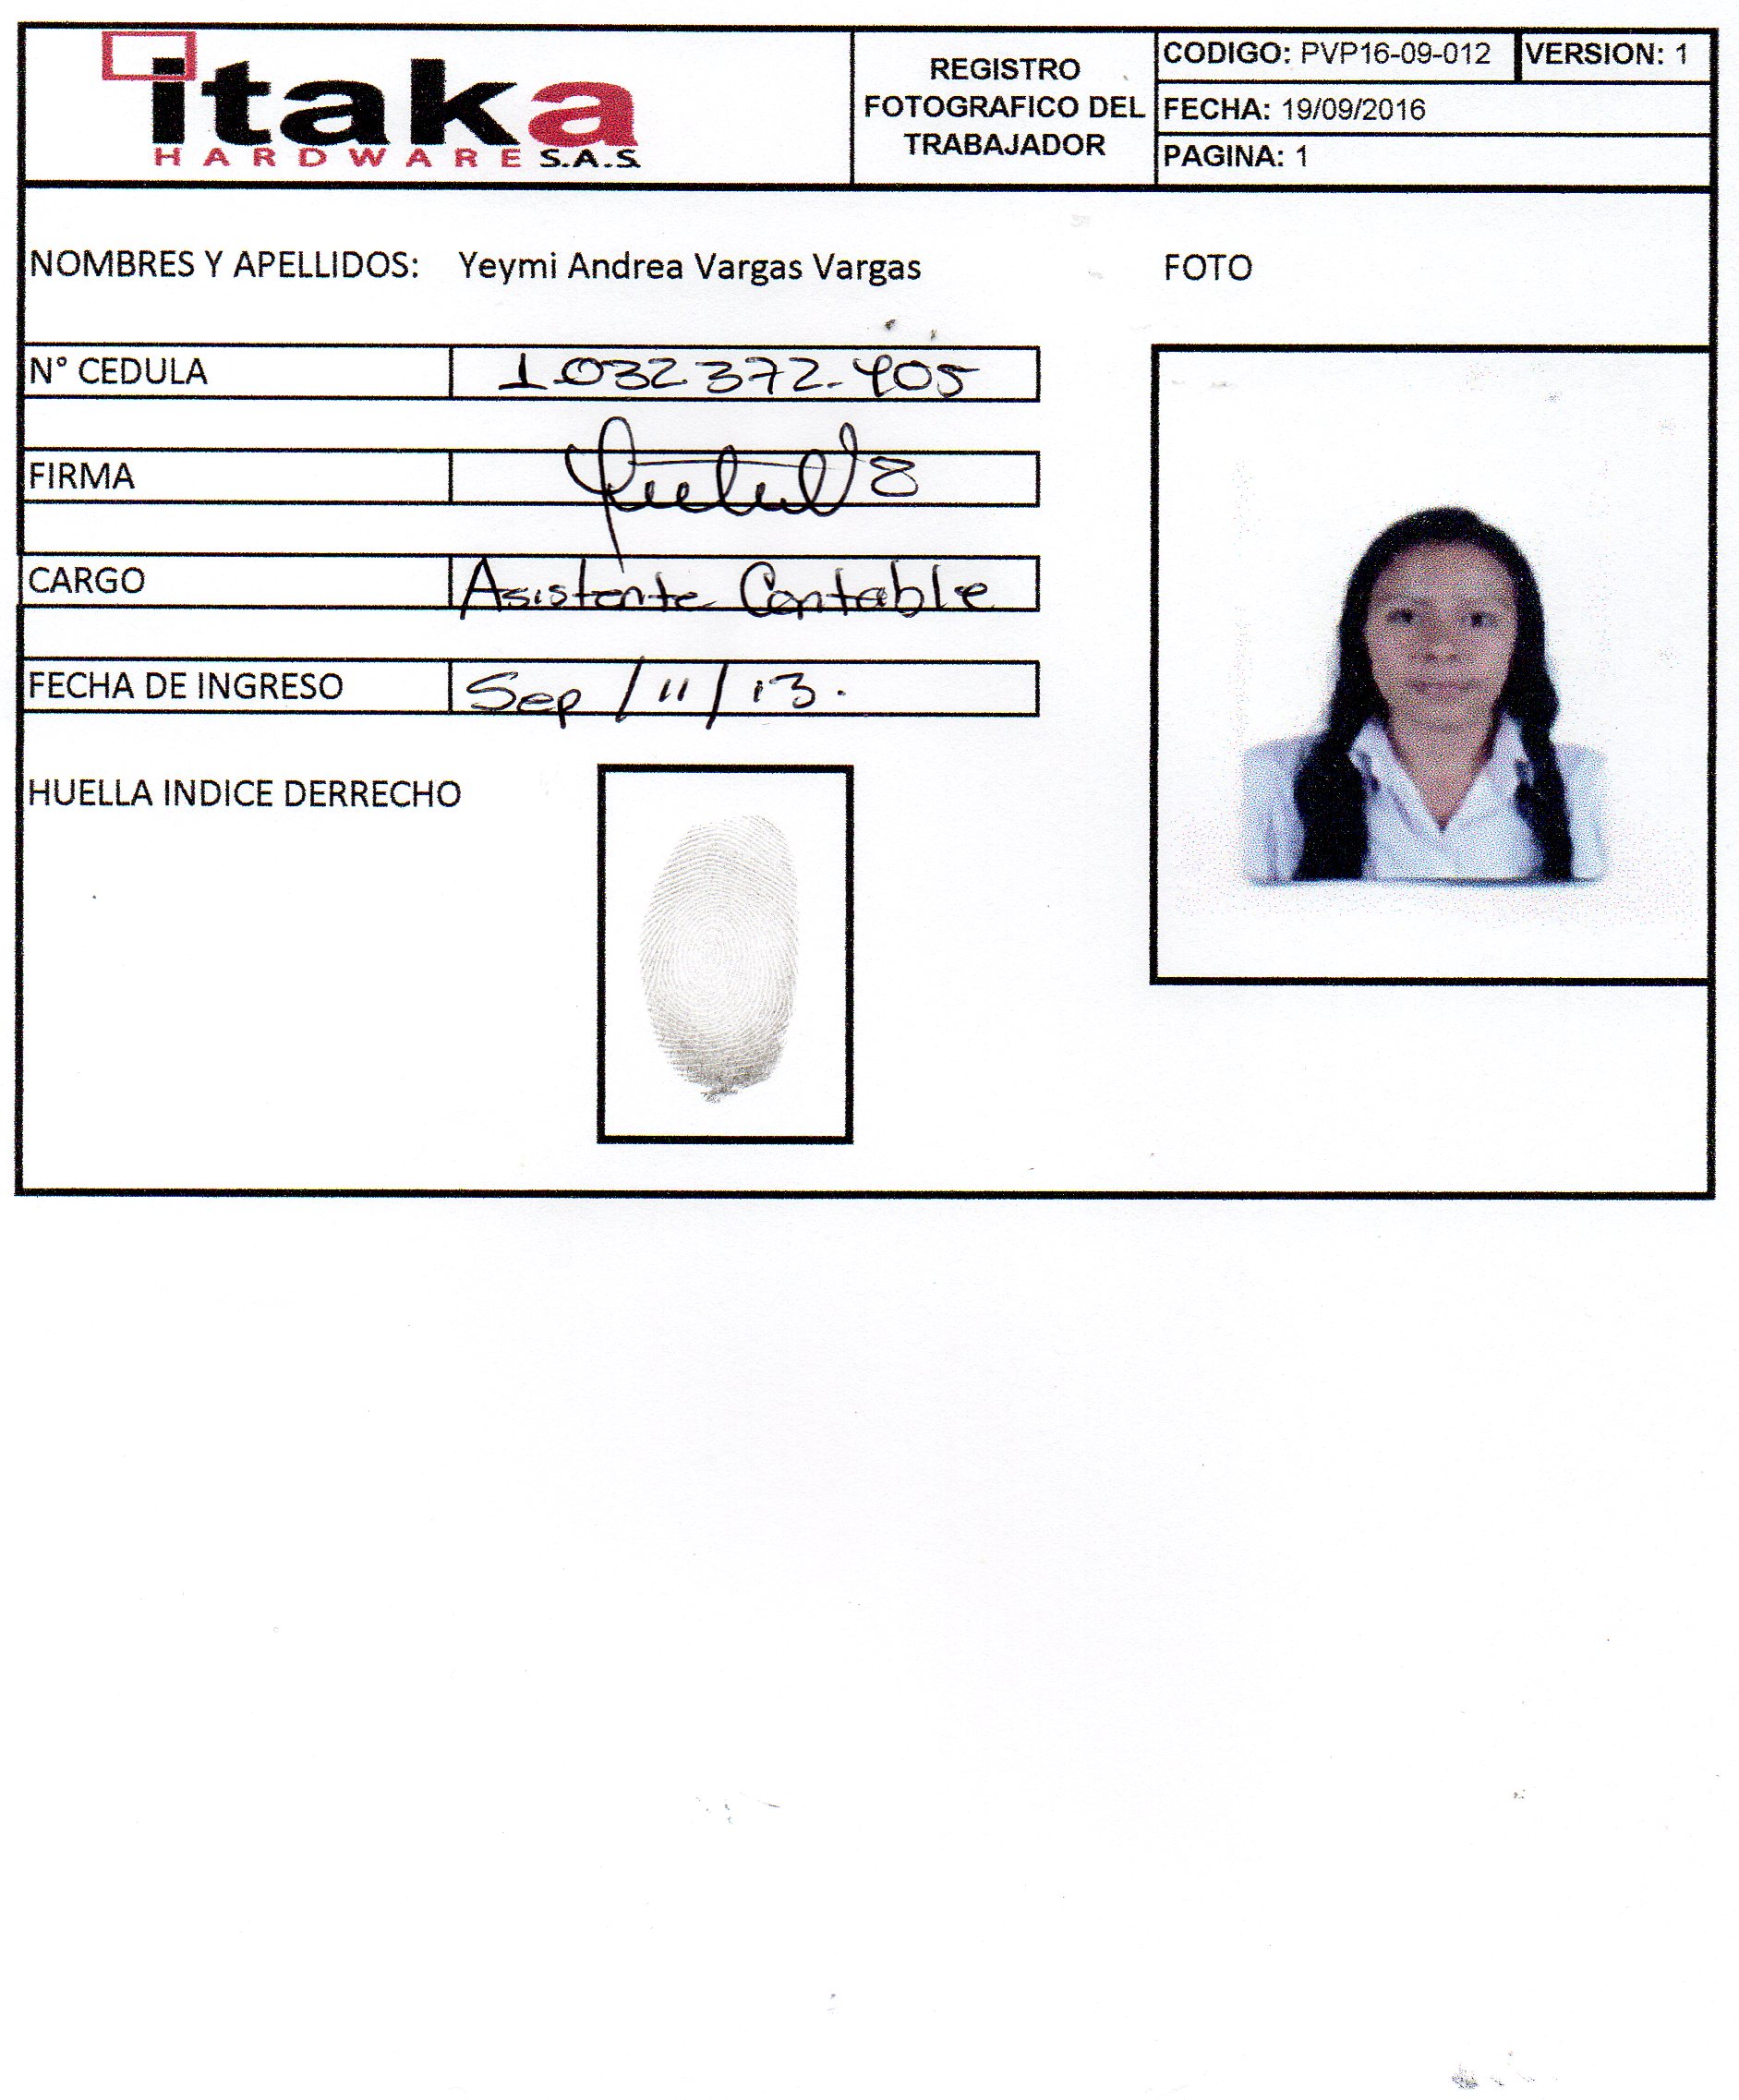 itaka
HARDWARE S.A.S.
REGISTRO
FOTOGRAFICO DEL
TRABAJADOR
CODIGO: PVP16-09-012 VERSION: 1
FECHA: 19/09/2016
PAGINA: 1
NOMBRES Y APELLIDOS: Yeymi Andrea Vargas Vargas
FOTO
N° CEDULA 1.032.372.405
FIRMA
CARGO Asistente Contable
FECHA DE INGRESO Sep / 11 / 13.
HUELLA INDICE DERRECHO